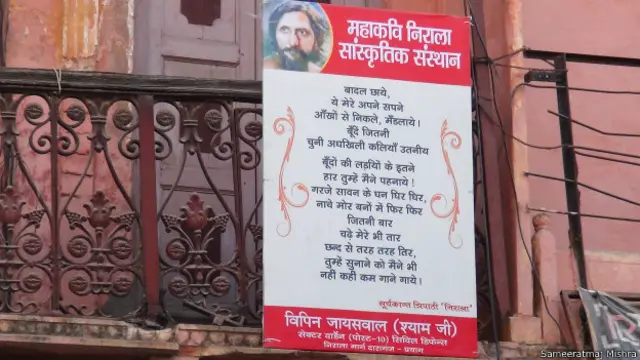 महाकवि निराला
सांस्कृतिक संस्थान
बादल छाये,
ये मेरे अपने सपने
आँखों से निकले, मँडलाये।
बूँदें जितनी
चुनी अधखिली कलियाँ उतनीय
बूँदों की लड़ियों के इतने
हार तुम्हें मैंने पहनाये !
गरजे सावन के घन घिर घिर,
नाचे मोर बनों में फिर फिर
जितनी बार
चढ़े मेरे भी तार
छन्द से तरह तरह तिर,
तुम्हें सुनाने को मैंने भी
नहीं कहीं कम गाने गाये।
सूर्यकान्त त्रिपाठी 'निराला'
विपिन जायसवाल (श्याम जी)
सेक्टर वार्डेन (पोस्ट-10) सिविल डिफेन्स
निराला मार्ग दारागंज - प्रयाग
Sameeratmaj Mishra